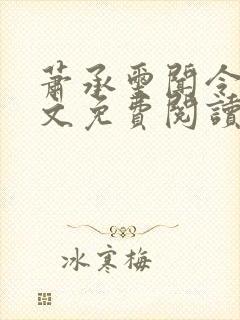 蕭承墨聞令
文免費閱讀
冰寒梅